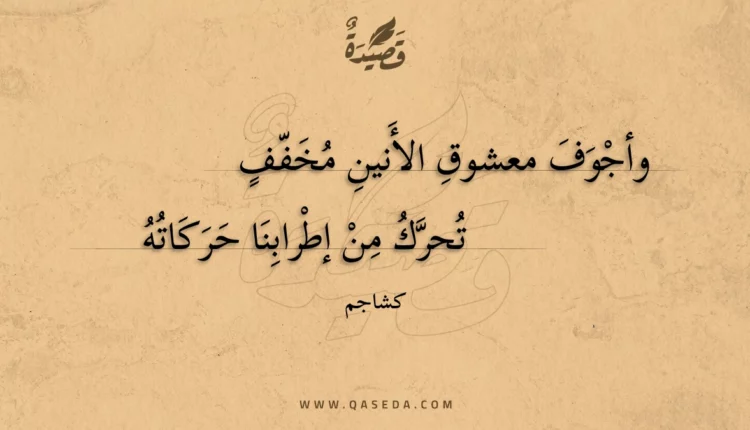 قَصِيْدَةٌ
وأجْوَفَ معشوقِ الأَنينِ مُخَفّفٍ
تُحرَّكُ مِنْ إطْرابِنَا حَرَكَاتُهُ
كشاجم
WWW.QASEDA.COM